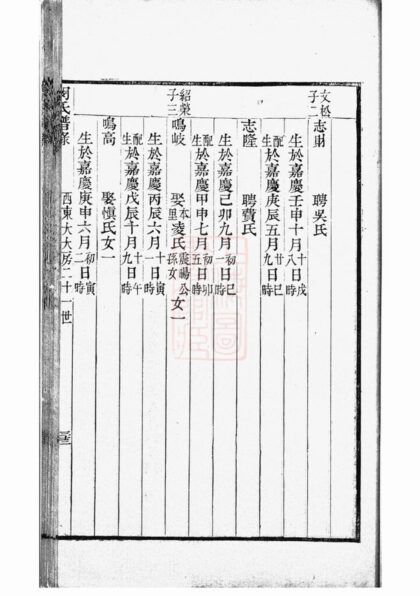 文松子二志財 聘吳氏
生於嘉慶壬申十月十八日戌時
配生於嘉慶庚辰五月廿九日巳時
志隆 聘費氏
生於嘉慶己卯九月初一日巳時
配生於嘉慶甲申七月初五日卯時
紹榮子三鳴岐 娶本里凌氏震暘公孫女女一
生於嘉慶丙辰六月十一日寅時
配生於嘉慶戊辰十月十九日午時
鳴高 娶慎氏女一
生於嘉慶庚申六月初二日寅時
氏譜 西東大大房二十一世